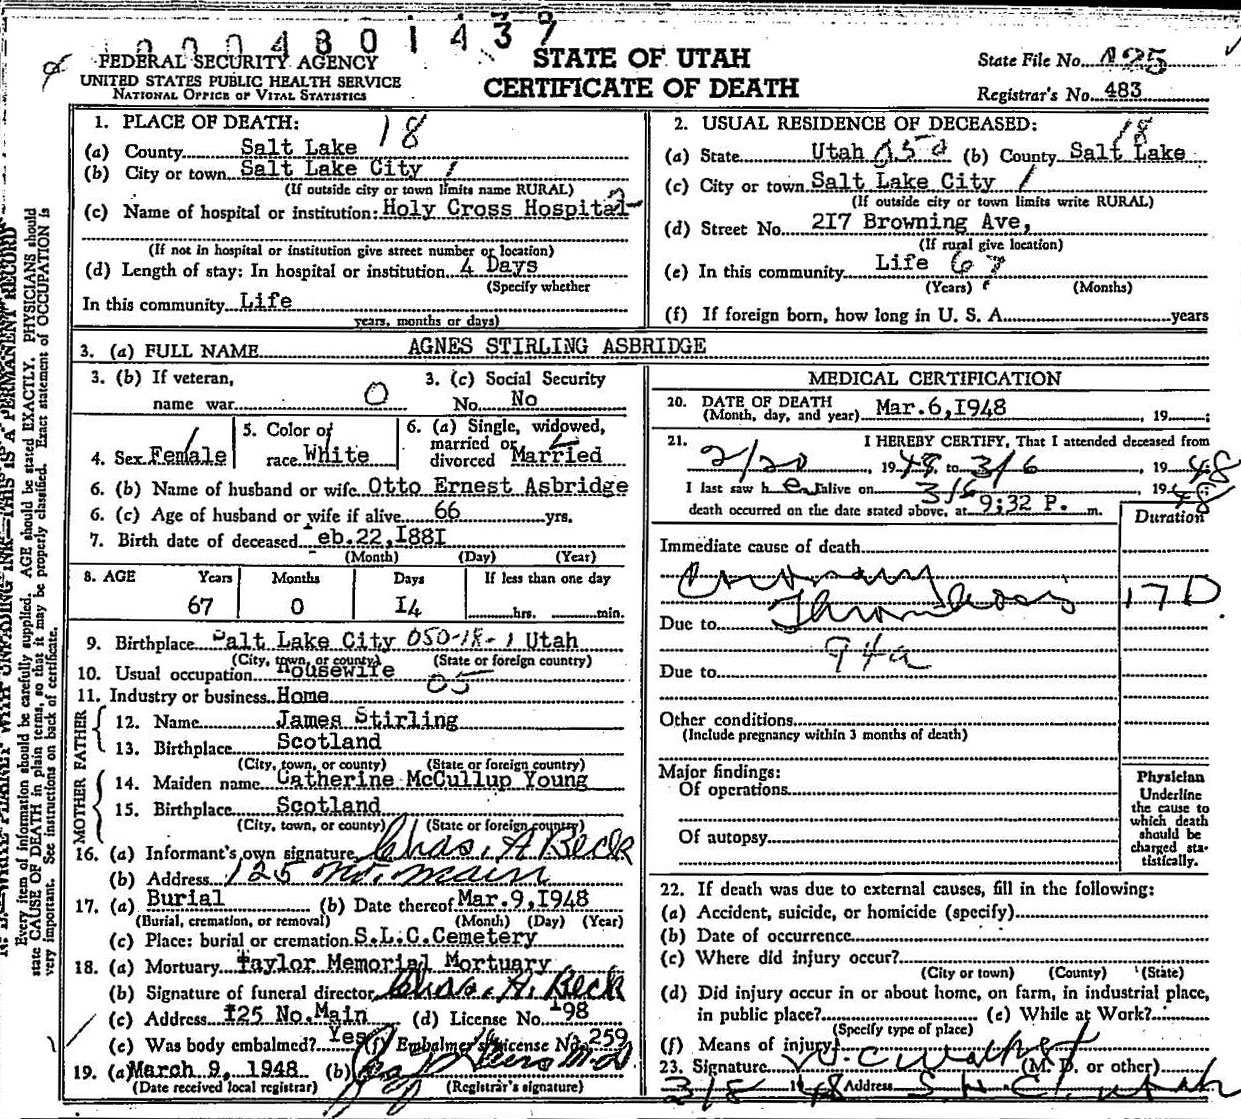 0004801439
FEDERAL SECURITY AGENCY
UNITED STATES PUBLIC HEALTH SERVICE
NATIONAL OFFICE OF VITAL STATISTICS
STATE OF UTAH
CERTIFICATE OF DEATH
State File No. 125
Registrar's No. 483
1. PLACE OF DEATH: 18
(a) County Salt Lake
(b) City or town Salt Lake City 1
(If outside city or town limits name RURAL)
(c) Name of hospital or institution: Holy Cross Hospital
(If not in hospital or institution give street number or location)
(d) Length of stay: In hospital or institution 4 Days
(Specify whether
In this community Life
years, months or days)
2. USUAL RESIDENCE OF DECEASED: 18
(a) State Utah 050 (b) County Salt Lake
(c) City or town Salt Lake City 1
(If outside city or town limits write RURAL)
(d) Street No. 2I7 Browning Ave,
(If rural give location)
(e) In this community Life 67
(Years) (Months)
(f) If foreign born, how long in U. S. A. years
3. (a) FULL NAME AGNES STIRLING ASBRIDGE
3. (b) If veteran, 3. (c) Social Security
name war 0 No. No
4. Sex Female 5. Color or race White 6. (a) Single, widowed, married or divorced Married
6. (b) Name of husband or wife Otto Ernest Asbridge
6. (c) Age of husband or wife if alive 66 yrs.
7. Birth date of deceased Feb.22,I88I
(Month) (Day) (Year)
8. AGE Years Months Days If less than one day
67 0 I4 hrs. min.
9. Birthplace Salt Lake City 050-18-1 Utah
(City, town, or county) (State or foreign country)
10. Usual occupation Housewife 05
11. Industry or business Home
FATHER
12. Name James Stirling
13. Birthplace Scotland
(City, town, or county) (State or foreign country)
MOTHER
14. Maiden name Catherine McCullup Young
15. Birthplace Scotland
(City, town, or county) (State or foreign country)
16. (a) Informant's own signature Chas. A Beck
(b) Address 125 No. Main
17. (a) Burial (b) Date thereof Mar.9,I948
(Burial, cremation, or removal) (Month) (Day) (Year)
(c) Place: burial or cremation S.L.C.Cemetery
18. (a) Mortuary Taylor Memorial Mortuary
(b) Signature of funeral director Chas. A. Beck
(c) Address I25 No.Main (d) License No. I98
(e) Was body embalmed? Yes (f) Embalmer's License No. 259
19. (a) March 9, 1948 (b)
(Date received local registrar) (Registrar's signature)
MEDICAL CERTIFICATION
20. DATE OF DEATH
(Month, day, and year) Mar.6,I948 , 19 ;
21. I HEREBY CERTIFY, That I attended deceased from
2/20 , 1948 to 3/6 , 1948
I last saw her alive on 3/6 , 1948;
death occurred on the date stated above, at 9;32 P. m.
Duration
Immediate cause of death
Coronary
Thrombosis 17 D
Due to
94a
Due to
Other conditions
(Include pregnancy within 3 months of death)
Major findings:
Of operations
Of autopsy
Physician
Underline
the cause to
which death
should be
charged sta-
tistically.
22. If death was due to external causes, fill in the following:
(a) Accident, suicide, or homicide (specify)
(b) Date of occurrence
(c) Where did injury occur?
(City or town) (County) (State)
(d) Did injury occur in or about home, on farm, in industrial place,
in public place? (e) While at Work?
(Specify type of place)
(f) Means of injury
23. Signature (M. D. or other)
3/8 1948 Address
Every item of information should be carefully supplied. AGE should be stated EXACTLY. PHYSICIANS should
state CAUSE OF DEATH in plain terms, so that it may be properly classified. Exact statement of OCCUPATION is
very important. See instructions on back of certificate.